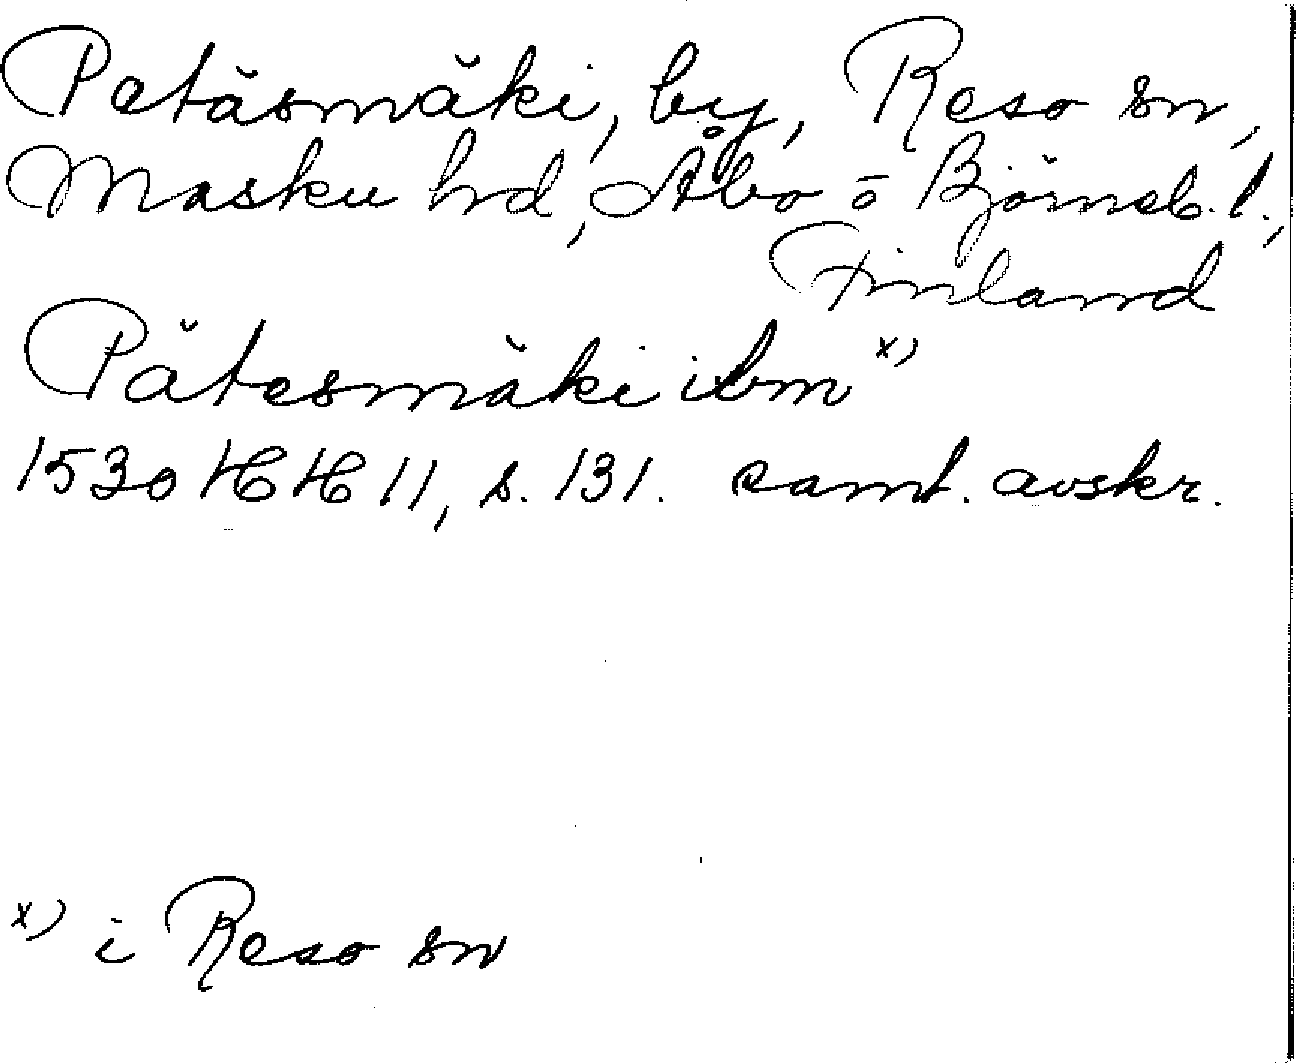 Petäsmäki, by, Reso sn,
Masku hd, Åbo o Björneb. l.,
Finland
Pätesmäki ibm x)
1530 HH 11, s. 131. samt. avskr.
x) i Reso sn